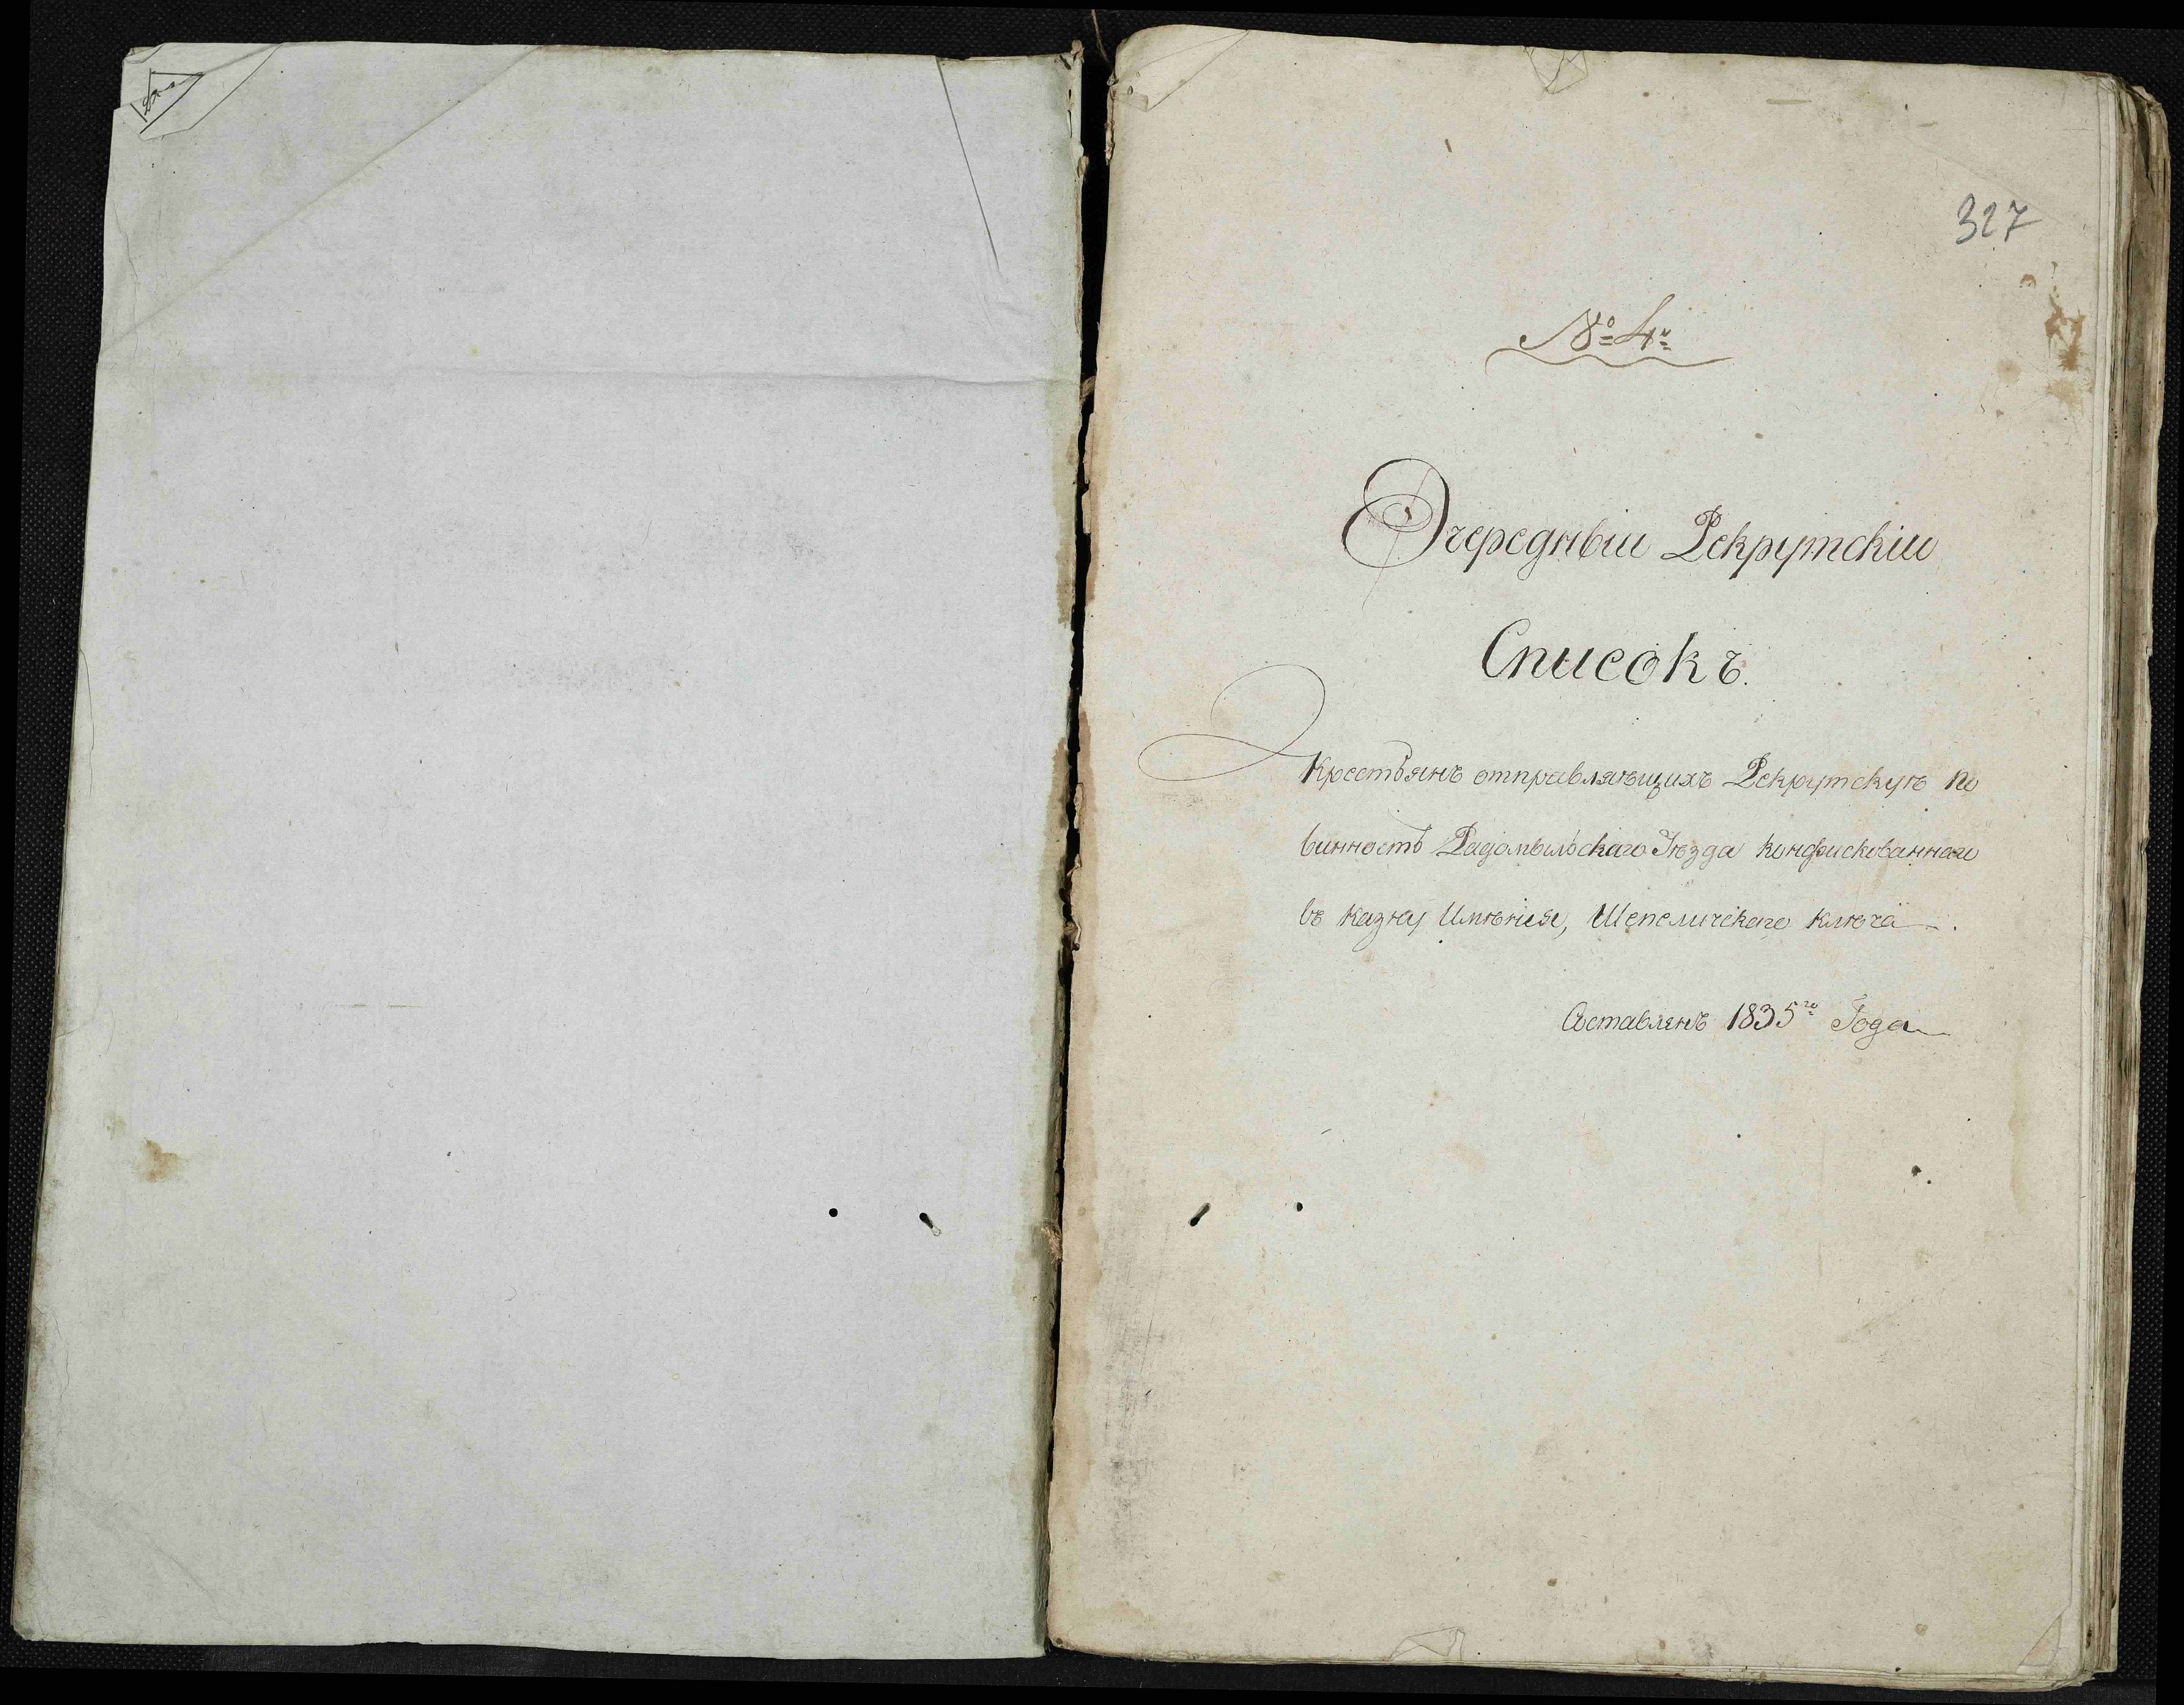 327
№ 4й
Очередный Рекрутскій
Списокъ.
Крестьянъ отправляющихъ Рекрутскую по
винность Радомыльскаго Уѣзда конфискованнаго
въ казну Имѣнія, Шепеличскаго ключа.
Составленъ 1835го Года